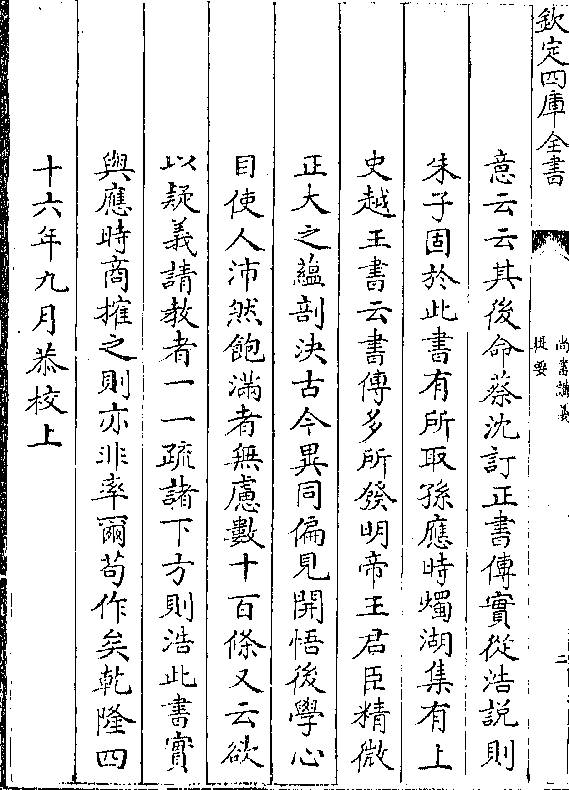 欽定四庫全書
尚書講義
提要
二
意云云其後命蔡沈訂正書傳實從浩説則
朱子固於此書有所取孫應時燭湖集有上
史越王書云書傳多所發明帝王君臣精微
正大之藴剖決古今異同偏見開悟後學心
目使人沛然飽滿者無慮數十百條又云欲
以疑義請教者一一疏諸下方則浩此書實
與應時商搉之則亦非率爾苟作矣乾隆四
十六年九月恭校上